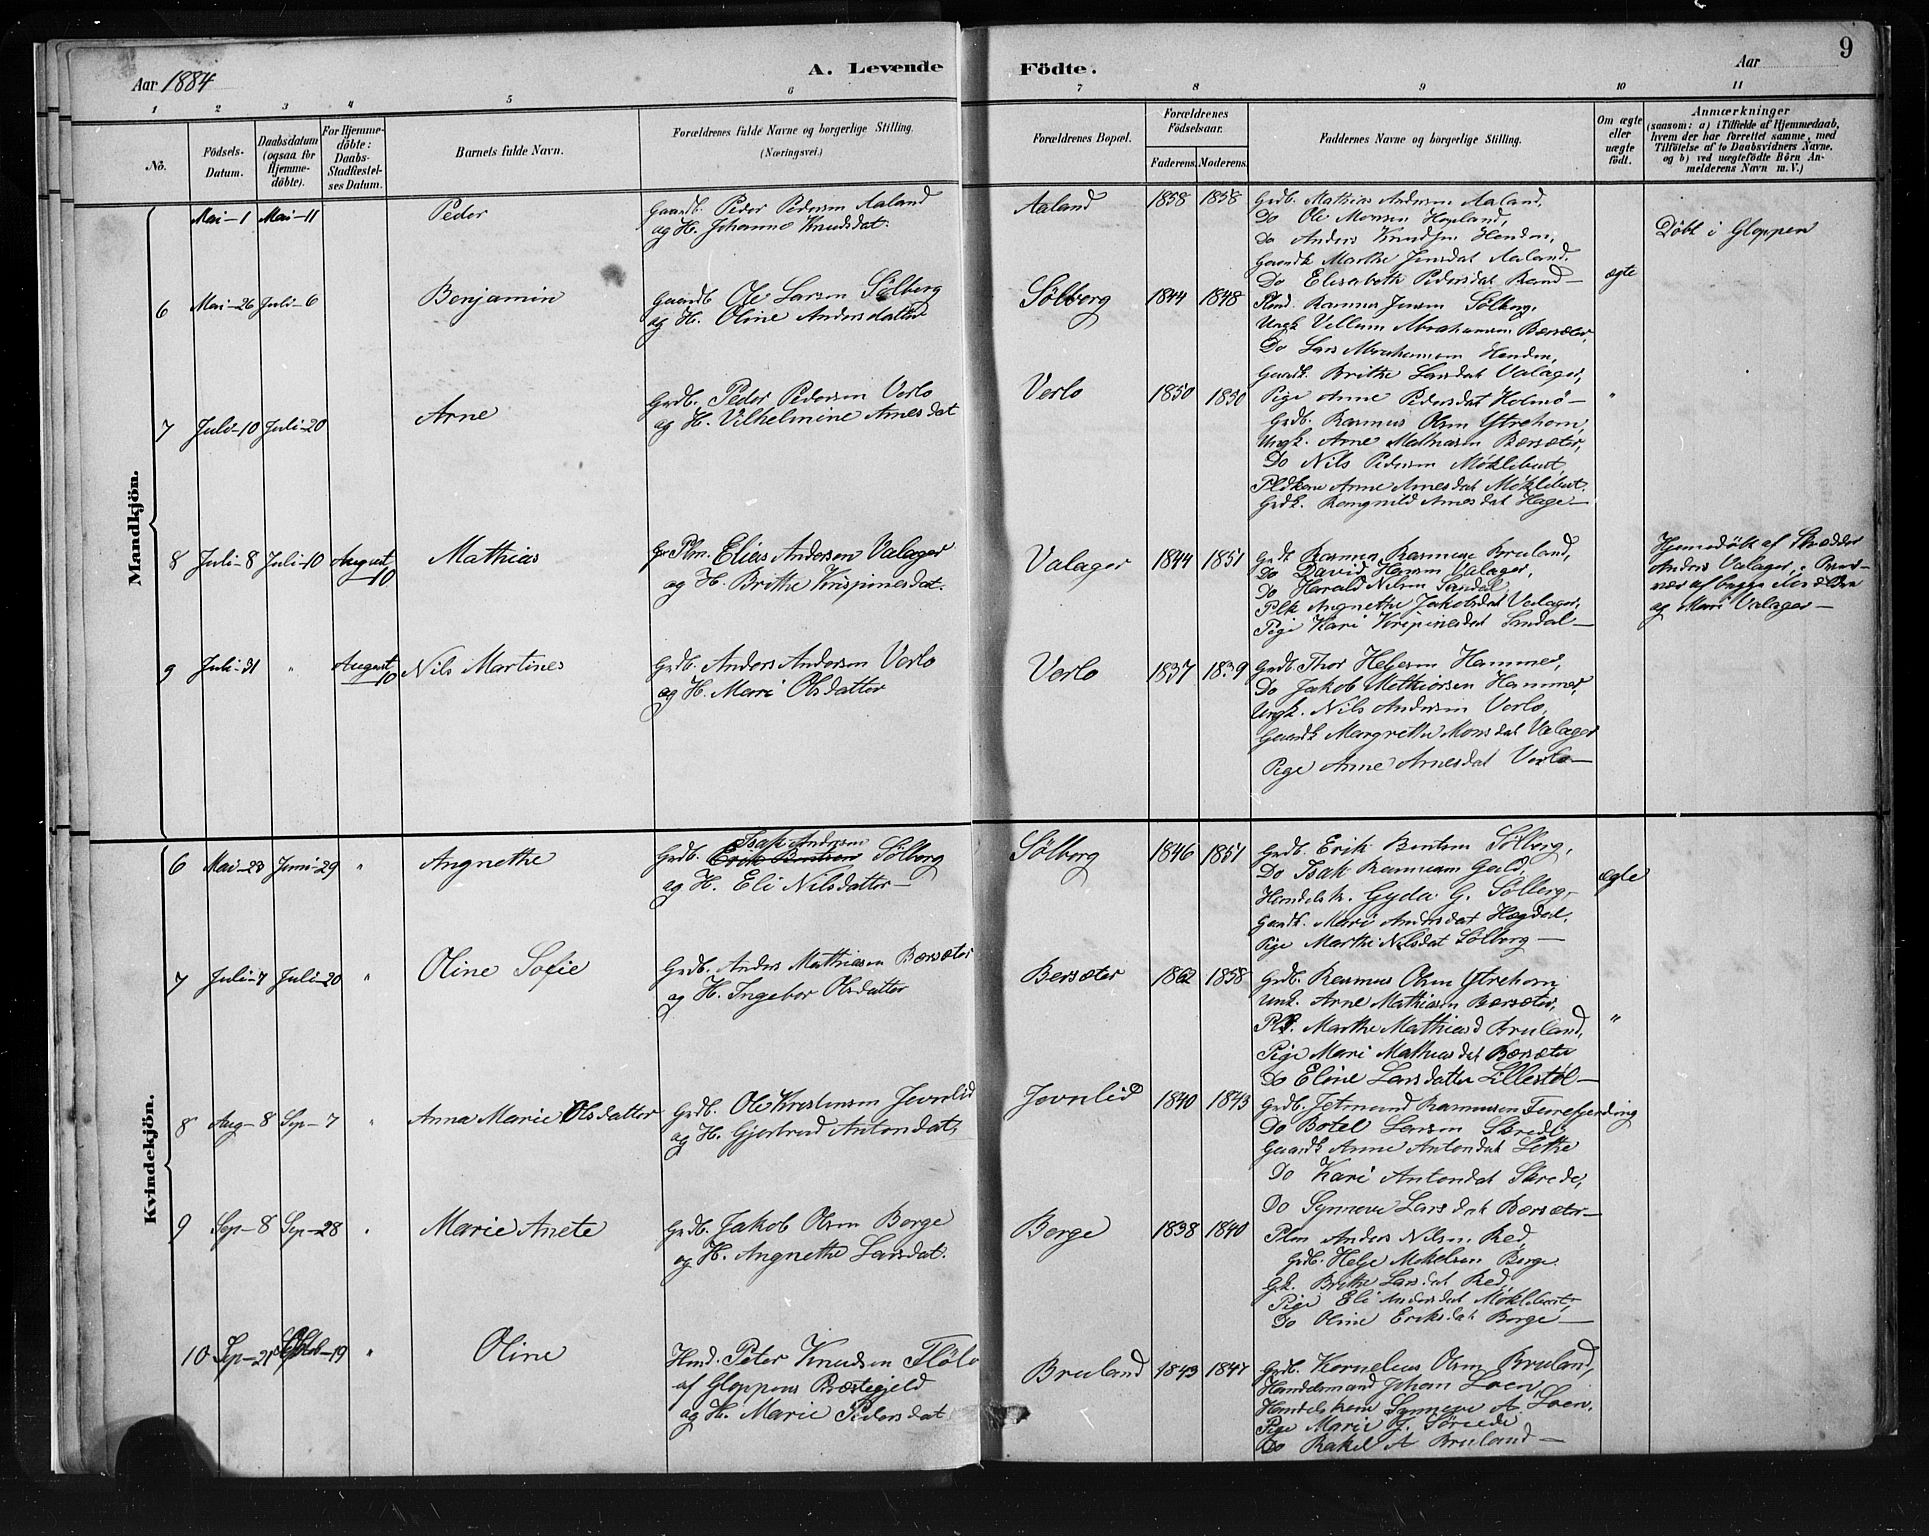 9
Aar 1884
A. Levende Födte.
Aar
1 2 3 4 5 6 7 8 9 10 11
No.
Födsels-Datum.
Daabsdatum (ogsaa for Hjemme-döbte).
For Hjemme-döbte: Daabs-Stadfæstel-ses Datum.
Barnets fulde Navn.
Forældrenes fulde Navne og borgerlige Stilling.
(Næringsvei.)
Forældrenes Bopæl.
Forældrenes Födselsaar.
Faderens. Moderens.
Faddernes Navne og borgerlige Stilling.
Om ægte eller uægte födt.
Anmærkninger
(saasom: a) i Tilfælde af Hjemmedaab,
hvem der har forrettet samme, med
Tilföielse af to Daabsvidners Navne,
og b) ved uægtefödte Börn An-
melderens Navn m. V.)
Mandkjön.
Mai-1 Mai-11 Peder
Gaardb. Peder Pedersen Aaland
og H. Johanne Knudsdat.
Aaland 1858 1858
Grdb. Mathias Andersen Aaland,
Do Ole Monsen Hopland,
Do Anders Knudsen Henden,
Gaardk Marthe Jensdat Aaland,
Do Elisabeth Pedersdat Rand—
Döbt i Gloppen
6 Mai-26 Juli-6 Benjamin
Gaardb Ole Larsen Sölberg
og H. Oline Andersdatter
Sölberg 1844 1848
Rasmus Jensen Sölberg,
Ungk Vellum Abrahamsen Bærsæter,
Do Lars Abrahamsen Henden,
Gaardk. Brithe Larsdat Valager,
Pige Anne Pedersdat Holmö—
ægte
7 Juli-10 Juli-20 Arne
Grdb. Peder Pedersen Verlo
og H. Vilhelmine Arnesdat
Verlo 1850 1850
Grdb. Rasmus Olsen Ytrehorn,
Ungk. Arne Mathiasen Bærsæter,
Do Nils Pedersen Möklebust,
Pldkone Anne Arnesdat Möklebust.
Grdk. Rangnild Arnesdat Hage—
"
8 Juli-8 Juli-10 August 10 Mathias
Pln. Elias Andersen Valager
og H. Brithe Krispinesdat.
Valager 1844 1851
Grdb Rasmus Rasmusen Bruland,
Do David Hansen Valager,
Do Harald Nilsen Sandal,
Plk Angnethe Jakobsdat Valager,
Pige Kari Krispinesdat Sandal—
Hjemedöbt af Skrædder
Anders Valager, i Nær-
vær af begge Forældre
og Mari Valager—
9 Juli-31 " August 10 Nils Martines
Grdb. Anders Andersen Verlo
og H. Mari Olsdatter
Verlo 1837 1839
Grdb. Thor Helgesen Hammer,
Do Jakob Methiorsen Hammer,
Ungk. Nils Andersen Verlo,
Gaardk Margrethe Monsdat Valager
Pige Anne Arnesdat Verlo—
Kvindekjön.
6 Mai-23 Juni-29 " Angnethe
Isak Andersen
Grdb. Erik Bentsen Sölberg
og H. Eli Nilsdatter—
Sölberg 1846 1851
Grdb. Erik Bentsen Sölberg,
Do Isak Rasmusen Gald,
Handelsk. Gyda G. Sölberg,
Gaardk. Mari Andersdat Hægdal,
Pige Marthe Nilsdat Sölberg—
ægte
7 Juli-7 Juli-20 " Oline Sofie
Grdb. Anders Mathiasen Bærsæter
og H. Ingebor Olsdatter
Bersæter 1862 1858
Grdb. Rasmus Olsen Ytrehorn
Unk. Arne Mathiasen Bærsæter,
Marthe Mathiasd Bruland,
Pige Mari Mathiasdat Bærsæter
Do Eline Larsdatter Lillestöl—
"
8 Aug-8 Sep-7 " Anna Marie Olsdatter
Grdb. Ole Kristensen Jevnlid
og H. Gjertrud Antondat,
Jevnlid 1840 1843
Grdb. Jetmund Rasmusen Furefjerding
Do Botel Larsen Skrede,
Gaardk Anne Antondat Lothe
Do Kari Antondat Skrede,
Do Synneve Larsdat Bærsæter—
9 Sep-8 Sep-28 " Marie Anete
Grdb. Jakob Olsen Borge
og H. Angnethe Larsdat.
Borge 1838 1840
Plm Anders Nilsen Red,
Grdb. Helge Mekelsen Borge
Gk. Brithe Larsdat Red,
Pige Eli Andersdat Möklebust,
Do Oline Eriksdat Borge—
10 Sep-21 Oktob-19 " Oline
Hmd. Peter Knudsen Flölo
af Gloppens Præstegjeld
og H. Marie Pedersdat
Bruland 1843 1847
Grdb. Kornelius Olsen Bruland,
Handelsmand Johan Loen,
Handelskone Synneve A. Loen,
Pige Marie J. Skrede
Do Rakel A Bruland—